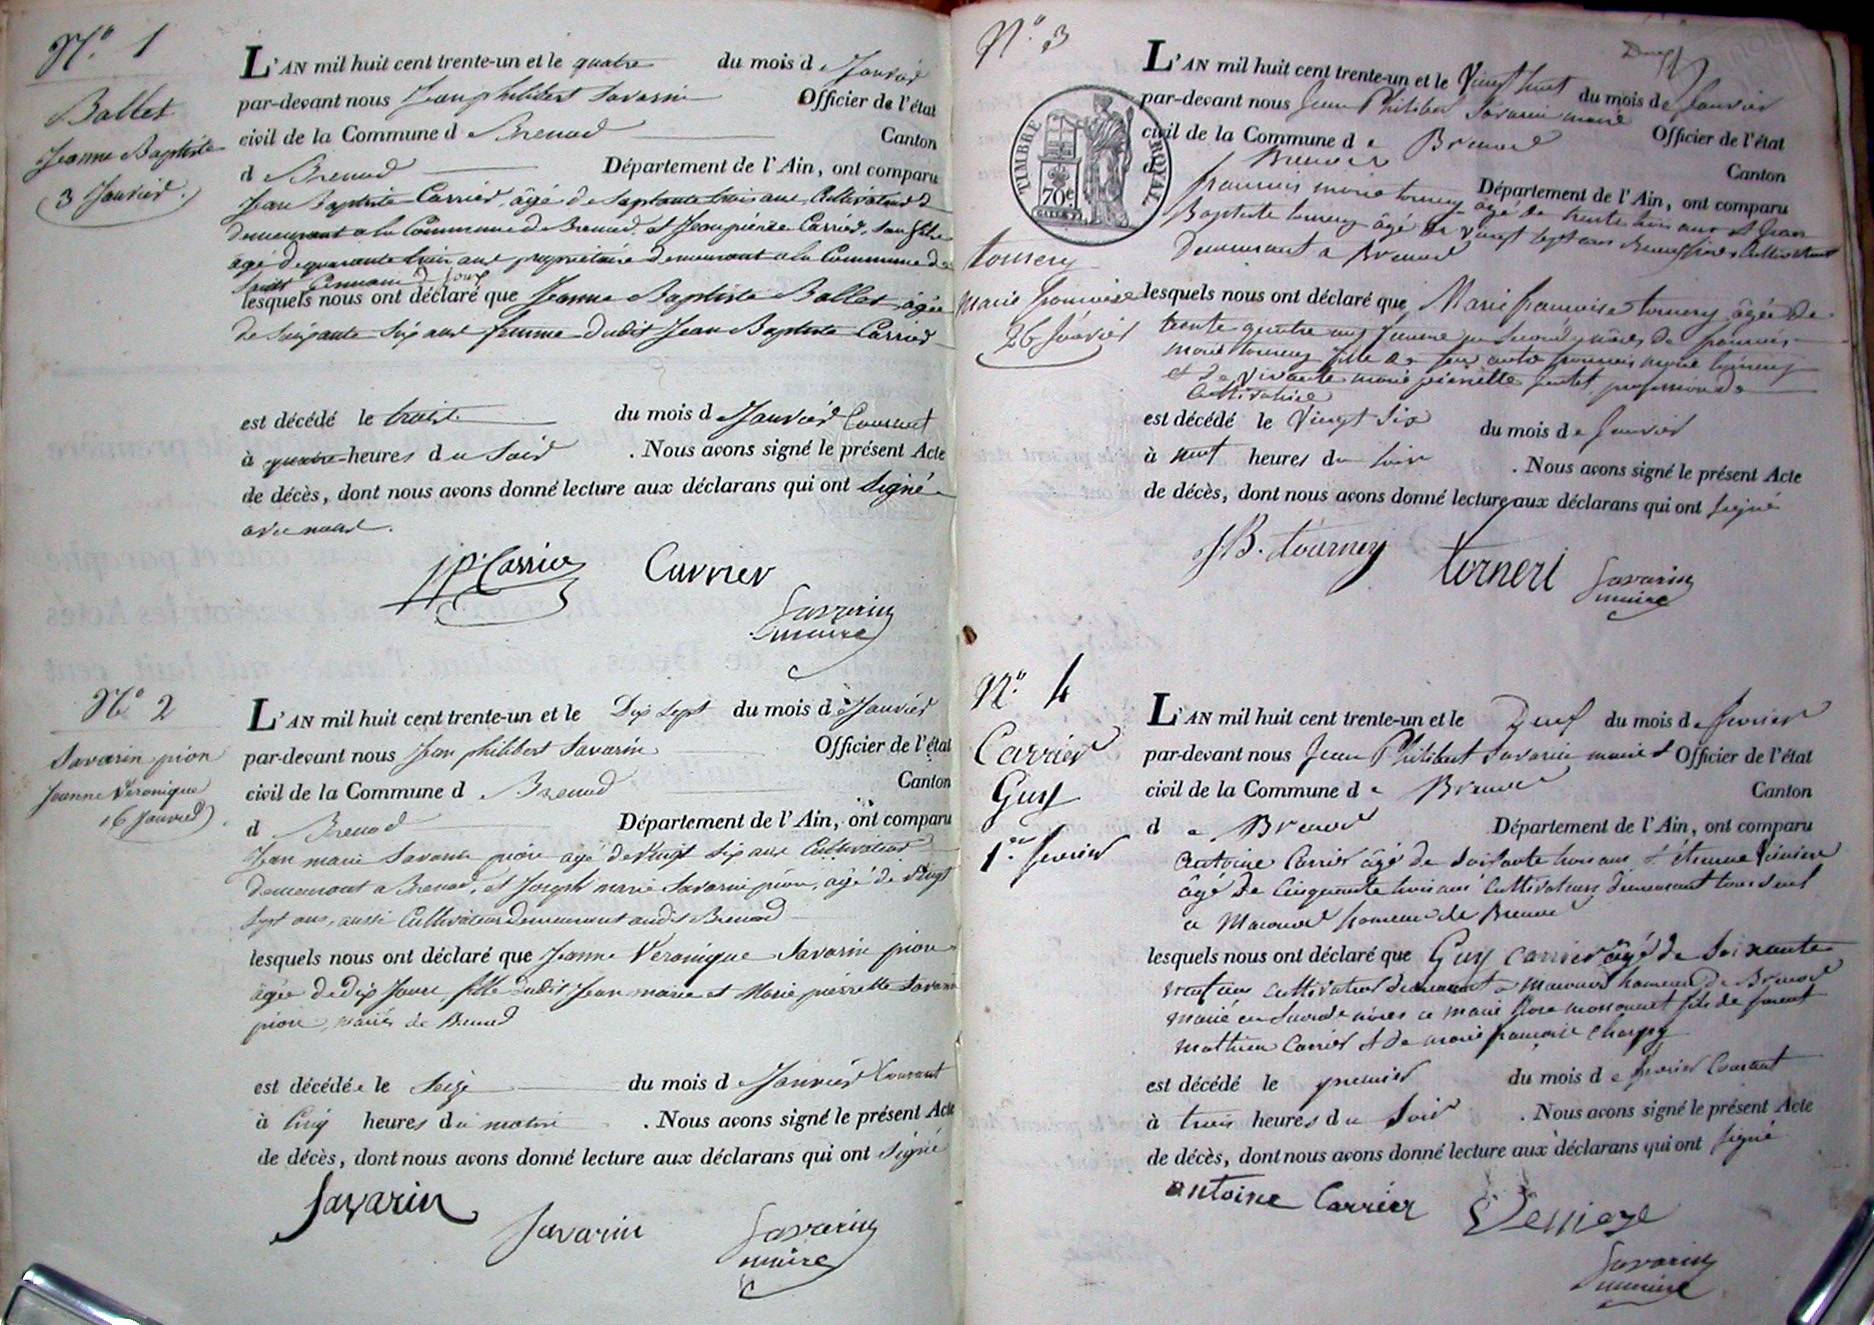 N.° 1
Ballet
Jeanne Baptiste
3 Janvier.
L'AN mil huit cent trente-un et le quatre du mois de Janvier
par-devant nous Jean philibert Savarin Officier de l'état
civil de la Commune de Brenod Canton
d Brenod Département de l'Ain, ont comparu
Jean Baptiste Carrier, âgé de Soptante trois ans, Cultivateur
demeurant a la Commune de Brenod, et Jean pierre Carrier, Son fils
âgé de quarante trois ans propriétaire demeurant a la Commune de
Saint Germain de Joux
lesquels nous ont déclaré que Jeanne Baptiste Ballet, âgée
de Soixante Six ans femme dudit Jean Baptiste Carrier
est décédé le trois du mois de Janvier Courant
à quatre heures du Soir . Nous avons signé le présent Acte
de décès, dont nous avons donné lecture aux déclarans qui ont Signé
avec nous.
J P. Carrier Carrier
Savarin
maire
N.° 2
Savarin pion
Jeanne Véronique
16 Janvier
L'AN mil huit cent trente-un et le Dix Sept du mois de Janvier
par-devant nous Jean philibert Savarin Officier de l'état
civil de la Commune d Brenod Canton
d Brenod Département de l'Ain, ont comparu
Jean marie Savarin pion agé de Vingt Six ans Cultivateur
demeurant a Brenod, et Joseph marie Savarin pion, agé de Vingt
Sept ans, aussi Cultivateur demeurant audit Brenod
lesquels nous ont déclaré que Jeanne Véronique Savarin pion
âgée de dix Jours, fille dudit Jean marie et Marie pierrette Savarin
pion mariés de Brenod
est décédée le Seize du mois de Janvier Courant
à Cinq heures du matin . Nous avons signé le présent Acte
de décès, dont nous avons donné lecture aux déclarans qui ont Signé
Savarin Savarin Savarin
maire
N.° 3
TIMBRE ROYAL
70c
tournery
Marie françoise
26 Janvier
L'AN mil huit cent trente-un et le Vingt huit du mois de Janvier
par-devant nous Jean Philibert Savarin maire Officier de l'état
civil de la Commune de Brenod Canton
d Brenod Département de l'Ain, ont comparu
françois marie tournery âgé de trente trois ans et Jean
Baptiste tournery âgé de vingt sept ans Cultivateurs
Demeurant a Brenod
lesquels nous ont déclaré que Marie françoise tournery âgée de
trente quatre ans femme en Seconde nôces de françois
marie tournery fille de feu autre françois marie tournery
et de vivante marie pierrette profession de
Cultivatrice
est décédé le Vingt Six du mois de Janvier
à neuf heures du Soir . Nous avons signé le présent Acte
de décès, dont nous avons donné lecture aux déclarans qui ont Signé
J B. tournery torneri Savarin
maire
N.° 4
Carrier
Guy
1.er fevrier
L'AN mil huit cent trente-un et le Deux du mois de fevrier
par-devant nous Jean Philibert Savarin maire et Officier de l'état
civil de la Commune de Brenod Canton
de Brenod Département de l'Ain, ont comparu
Antoine Carrier âgé de Soixante trois ans et étienne
âgé de Cinquante trois ans Cultivateurs demeurant tous deux
a Macconod hameau de Brenod
lesquels nous ont déclaré que Guy Carrier âgé de Soixante
Cultivateur demeurant a Macconod hameau de Brenod
marié en Seconde nôces a marie fils de
mathieu Carrier et de marie françoise Charpy
est décédé le premier du mois de fevrier Courant
à trois heures du Soir . Nous avons signé le présent Acte
de décès, dont nous avons donné lecture aux déclarans qui ont Signé
antoine Carrier
Savarin
maire